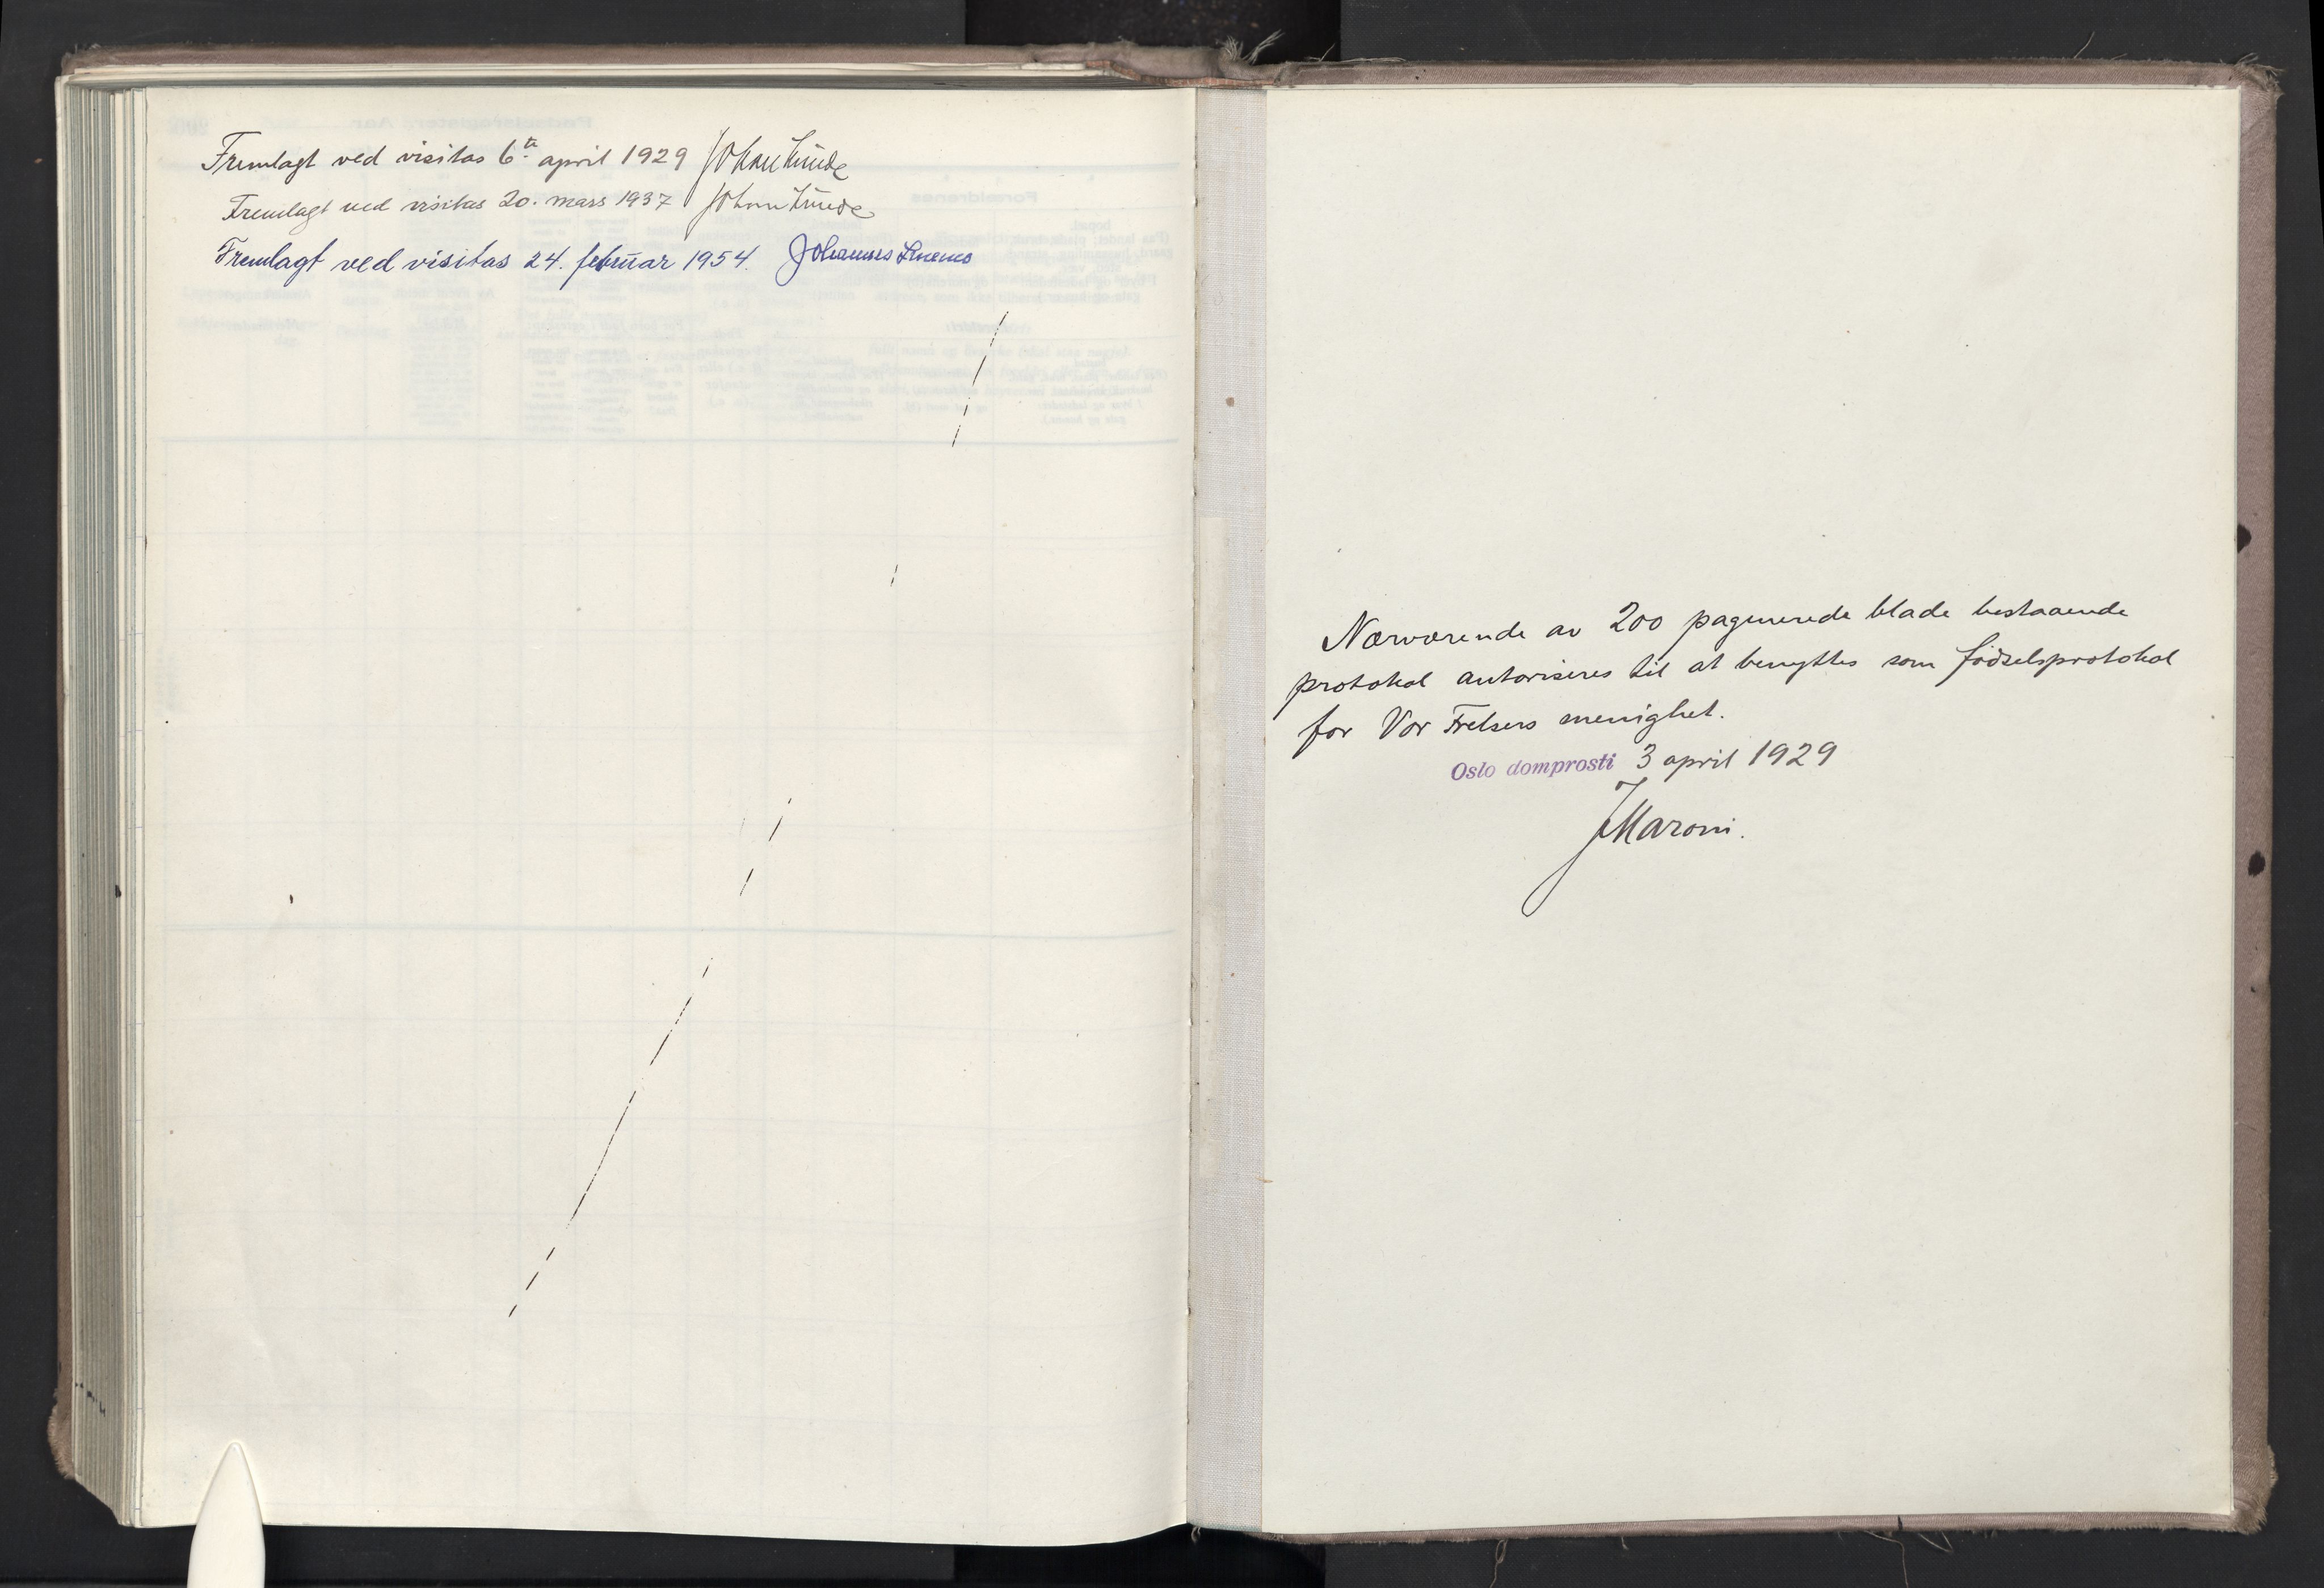 Fremlagt ved visitas 6te april 1929 Johan Lunde
Fremlagt ved visitas 20. mars 1937 Johan Lunde
Fremlagt ved visitas 24. februar 1954. Johannes Smemo
Nærværende av 200 paginerede blade bestaaende
protokol autoriseres til at benyttes som fødselsprotokol
for Vor Frelsers menighet.
Oslo domprosti 3 april 1929
JMaroni.